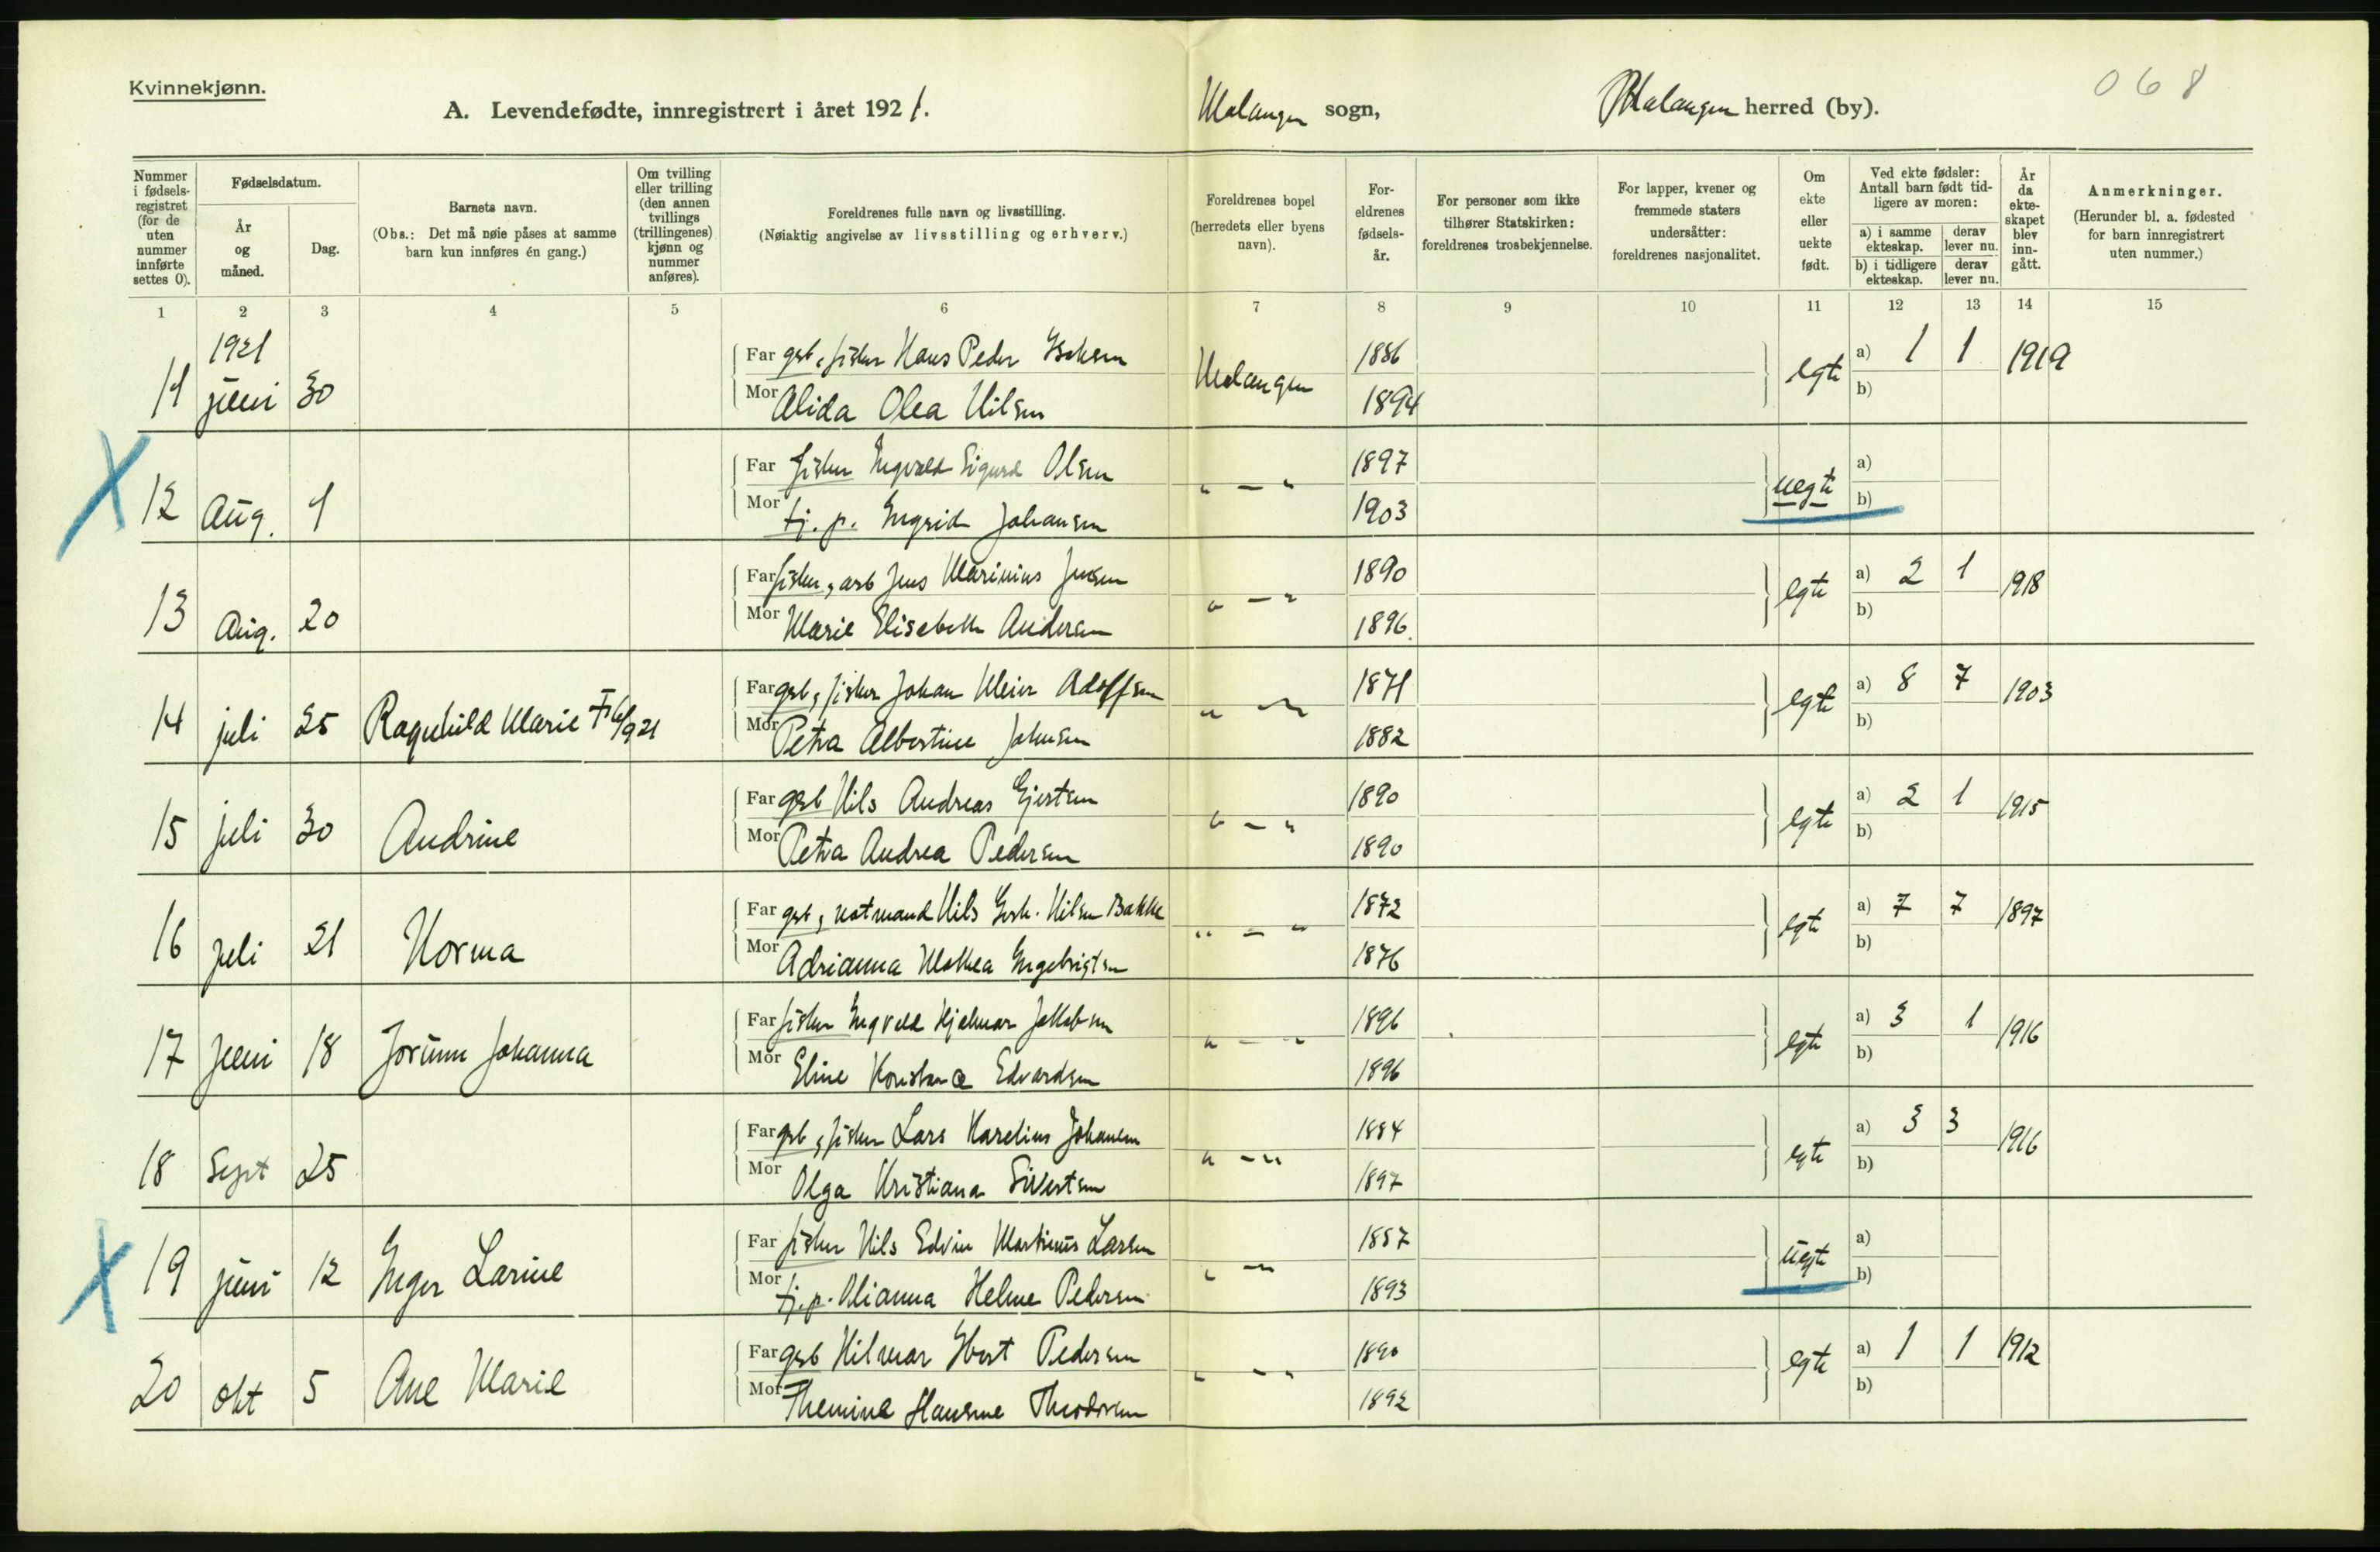 Kvinnekjønn.
A. Levendefødte, innregistrert i året 1921. Malangen sogn, Malangen herred (by). 068
Nummer i fødselsregistret (for de uten nummer innførte settes 0).
Fødselsdatum.
År og måned.
Dag.
Barnets navn.
(Obs.: Det må nøie påses at samme barn kun innføres én gang.)
Om tvilling eller trilling (den annen tvillings (trillingenes) kjønn og nummer anføres).
Foreldrenes fulle navn og livsstilling.
(Nøiaktig angivelse av livsstilling og erhverv.)
Foreldrenes bopel (herredets eller byens navn).
Foreldrenes fødselsår.
For personer som ikke tilhører Statskirken: foreldrenes trosbekjennelse.
For lapper, kvener og fremmede staters undersåtter: foreldrenes nasjonalitet.
Om ekte eller uekte født.
Ved ekte fødsler: Antall barn født tidligere av moren:
a) i samme ekteskap. derav lever nu.
b) i tidligere ekteskap. derav lever nu.
År da ekteskapet blev inngått.
Anmerkninger.
(Herunder bl. a. fødested for barn innregistrert uten nummer.)
1 2 3 4 5 6 7 8 9 10 11 12 13 14 15
1921
11 juni 30 Far gsb, fisker Hans Peder Malangen 1886 egte a) 1 1 1919
Mor Alida Olea Nilsen 1894 b)
12 Aug. 4 Far fisker Ingvald Sigurd Olsen " — " 1897 uegte a)
Mor tj. p. Ingrid Johansen 1903 b)
13 Aug. 20 Far fisker, arb Jens Marinius Jensen " — " 1890 egte a) 2 1 1918
Mor Marie Elisabeth Andersen 1896. b)
14 juli 25 Ragnhild Marie † Far gsb, fisker Johan Meier Adolfsen " — " 1871 egte a) 8 7 1903
Mor Petra Albertine Johnsen 1882 b)
15 juli 30 Andrine Far gsb Nils Andreas Gjertsen " — " 1890 egte a) 2 1 1915
Mor Petra Andrea Pedersen 1890 b)
16 juli 21 Norma Far gsb, notmand Nils Nilsen Bakke " — " 1872 egte a) 7 7 1897
Mor Adrianna Mathea Engebrigtsen 1876 b)
17 juni 18 Jorunn Johanna Far fisker Ingvald Hjalmar Jakobsen " — " 1896 egte a) 3 1 1916
Mor Eline Konstance Edvardsen 1896 b)
18 Sept 25 Far gsb, fisker Lars Karelius Johansen " — " 1884 egte a) 3 3 1916
Mor Olga Kristiana Sivertsen 1897 b)
19 juni 12 Inger Larine Far fisker Nils Edvin Martinus Larsen " — " 1887 uegte a)
Mor tj. p. Olianna Helene Pedersen 1893 b)
20 okt 5 Ane Marie Far gsb Hilmar Pedersen " — " 1890 egte a) 1 1 1912
Mor Hansine Theodorsen 1892 b)